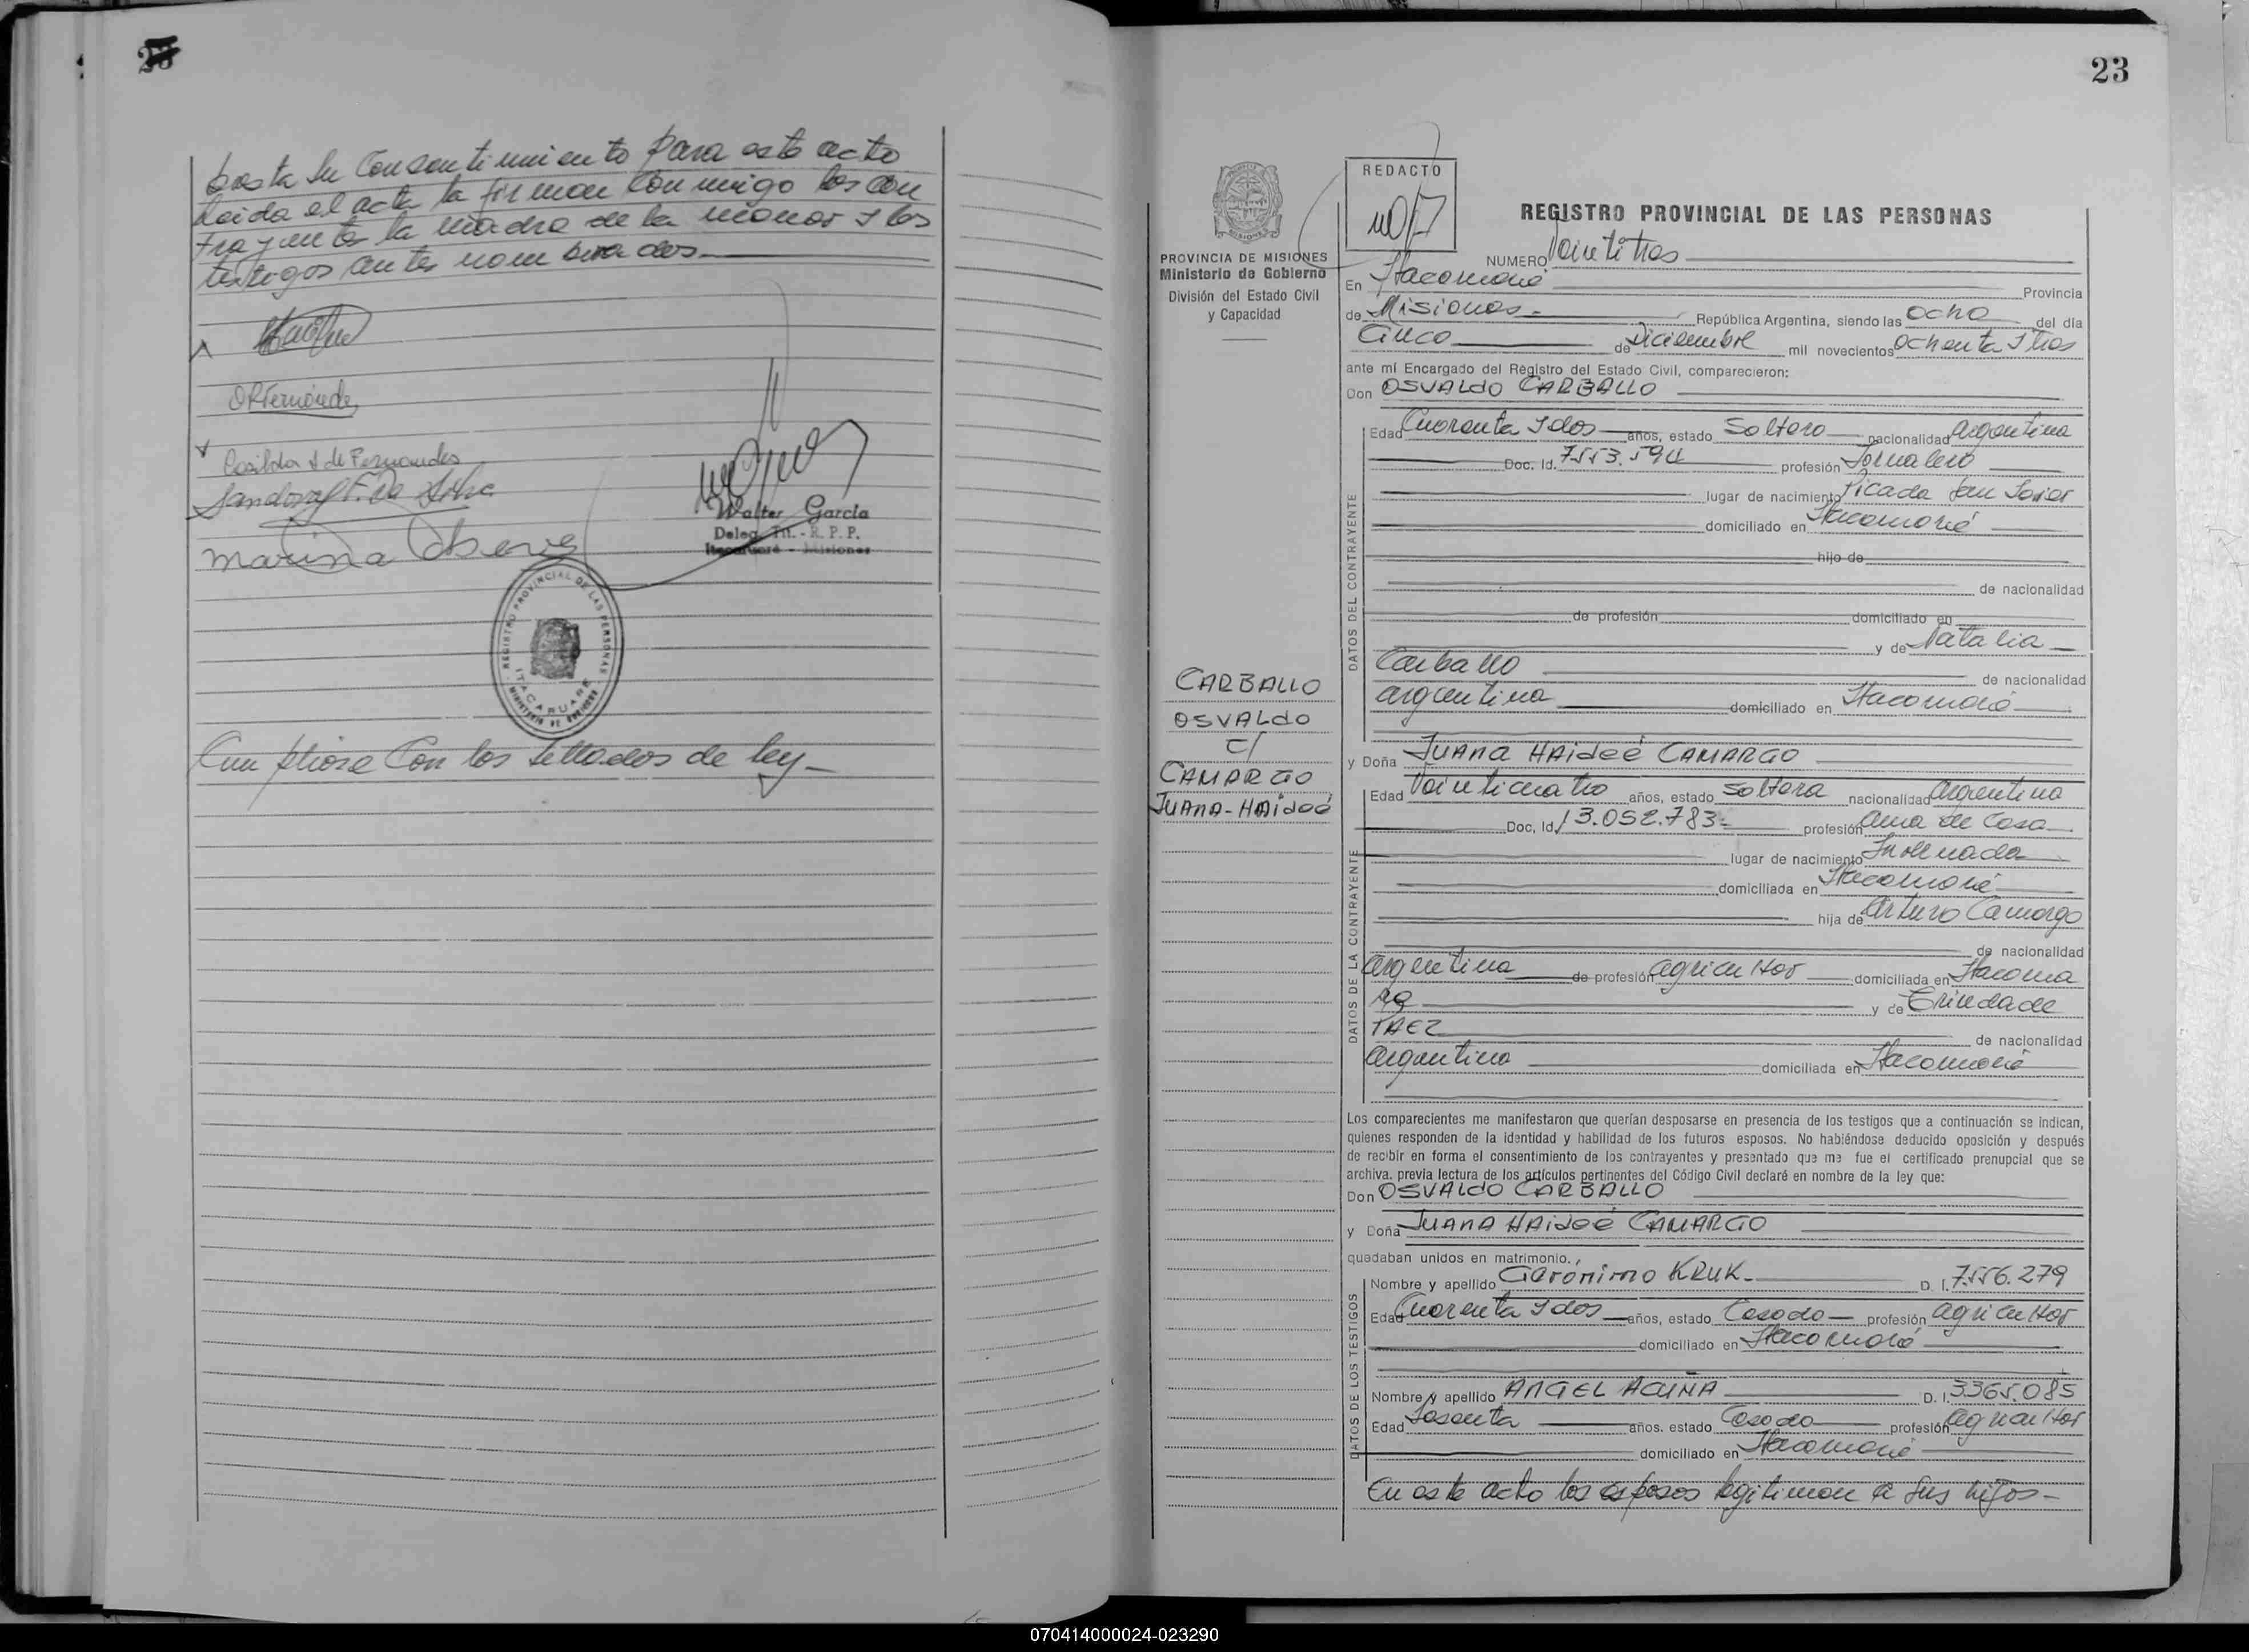 presta su Consentimiento para este acto
Leida el acta la firman Conmigo los Con
trayentes la madre de la menor y los
testigos antes nombrados
ORFernández
Casilda S de Fernandes
Sandoval F. Da Silva
Marina
Walter García
Deleg. Tit. - R. P. P.
Itacaruaré - Misiones
REGISTRO PROVINCIAL DE LAS PERSONAS
ITACARUARE
MINISTERIO DE GOBIERNO
Cumpliose Con los sellados de ley
23
PROVINCIA DE MISIONES
Ministerio de Gobierno
División del Estado Civil
y Capacidad
CARBALLO
OSVALDO
c/
CAMARGO
JUANA-HAideé
REDACTO
REGISTRO PROVINCIAL DE LAS PERSONAS
NUMERO Veintitres
En Itacaruaré Provincia
de Misiones República Argentina, siendo las ocho del día
Cinco de Diciembre mil novecientos ochenta y tres
ante mí Encargado del Registro del Estado Civil, comparecieron:
Don OSVALDO CARBALLO
DATOS DEL CONTRAYENTE
Edad Cuarenta y dos años, estado Soltero nacionalidad argentina
Doc. Id. 7553.594 profesión Jornalero
lugar de nacimiento Picada San Javier
domiciliado en Itacaruaré
hijo de
de nacionalidad
de profesión domiciliado en
y de Natalia
Carballo de nacionalidad
argentina domiciliado en Itacaruaré
y Doña JUANA HAideé CAMARGO
DATOS DE LA CONTRAYENTE
Edad Veinticuatro años, estado Soltera nacionalidad argentina
Doc, Id. 13.052.783 profesión ama de Casa
lugar de nacimiento Invernada
domiciliada en Itacaruaré
hija de Arturo Camargo
de nacionalidad
argentina de profesión agricultor domiciliada en Itacarua
ré y de Trindade
PAEZ de nacionalidad
argentina domiciliada en Itacaruaré
Los comparecientes me manifestaron que querían desposarse en presencia de los testigos que a continuación se indican,
quienes responden de la identidad y habilidad de los futuros esposos. No habiéndose deducido oposición y después
de recibir en forma el consentimiento de los contrayentes y presentado que me fue el certificado prenupcial que se
archiva. previa lectura de los artículos pertinentes del Código Civil declaré en nombre de la ley que:
Don OSVALDO CARBALLO
y Doña JUANA HAideé CAMARGO
quedaban unidos en matrimonio.
DATOS DE LOS TESTIGOS
Nombre y apellido Gerónimo KRUK D. I. 7.556.279
Edad Cuarenta y dos años, estado Casado profesión agricultor
domiciliado en Itacaruaré
Nombre y apellido ANGEL ACUÑA D. I. 3365.085
Edad Sesenta años. estado Casado profesión agricultor
domiciliado en Itacaruaré
En este acto los esposos legitiman a sus hijos
070414000024-023290